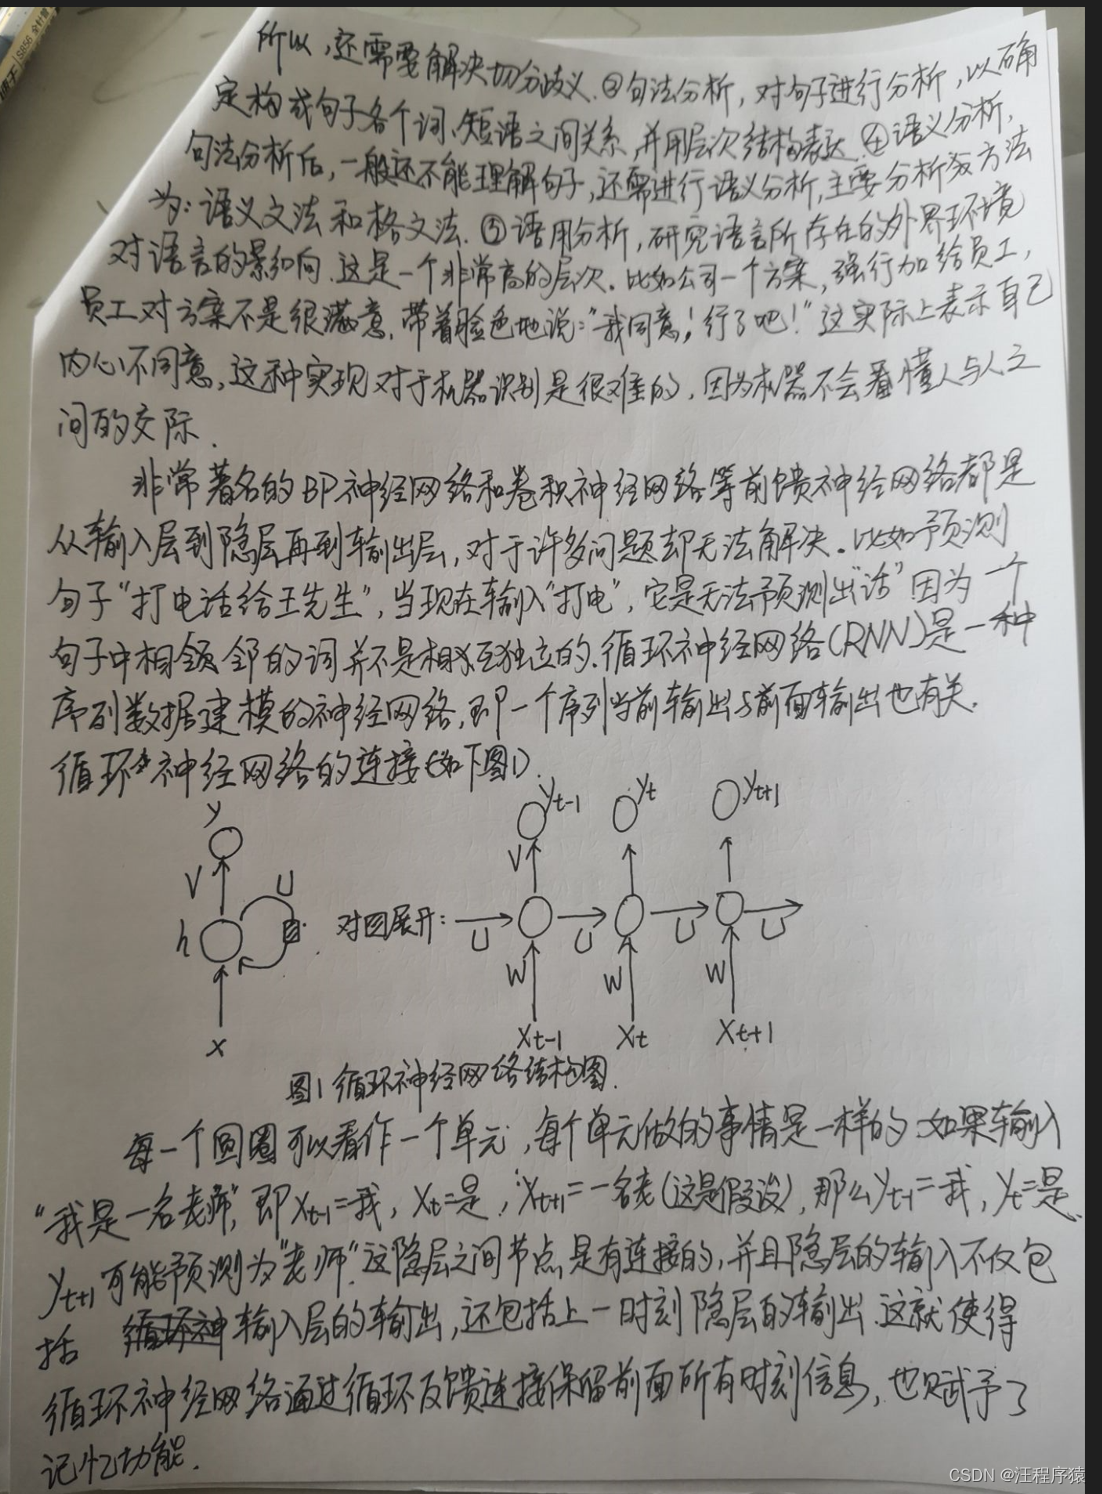 所以,还需要解决切分歧义.③句法分析,对句子进行分析,以确
定构成句子各个词、短语之间关系,并用层次结构表达.④语义分析,
句法分析后,一般还不能理解句子,还需进行语义分析,主要分析方法
为:语义文法和格文法.⑤语用分析,研究语言所存在的外界环境
对语言的影响.这是一个非常高的层次.比如公司一个方案,强行加给员工,
员工对方案不是很满意,带着脸色地说:“我同意!行了吧!”这实际上表示自己
内心不同意,这种实现对于机器识别是很难的,因为机器不会看懂人与人之
间的交际.
非常著名的BP神经网络和卷积神经网络等前馈神经网络都是
从输入层到隐层再到输出层,对于许多问题却无法解决.比如预测
句子“打电话给王先生”,当现在输入“打电”,它是无法预测出“话”因为一个
句子中相邻的词并不是相互独立的.循环神经网络(RNN)是一种
序列数据建模的神经网络,即一个序列当前输出与前面输出也有关.
循环神经网络的连接(如下图1).
y
yt-1
yt
yt+1
V
U
V
h
对图展开:
U
U
U
U
W
W
W
x
Xt-1
Xt
Xt+1
图1 循环神经网络结构图.
每一个圆圈可以看作一个单元,每个单元做的事情是一样的.如果输入
“我是一名老师”,即Xt-1=我,Xt=是,Xt+1=一名老(这是假设),那么yt-1=我,yt=是,
yt+1可能预测为“老师”.这隐层之间节点是有连接的,并且隐层的输入不仅包
括 循环神 输入层的输出,还包括上一时刻隐层的输出.这就使得
循环神经网络通过循环反馈连接保留前面所有时刻信息,也赋予了
记忆功能.
CSDN @汪程序猿